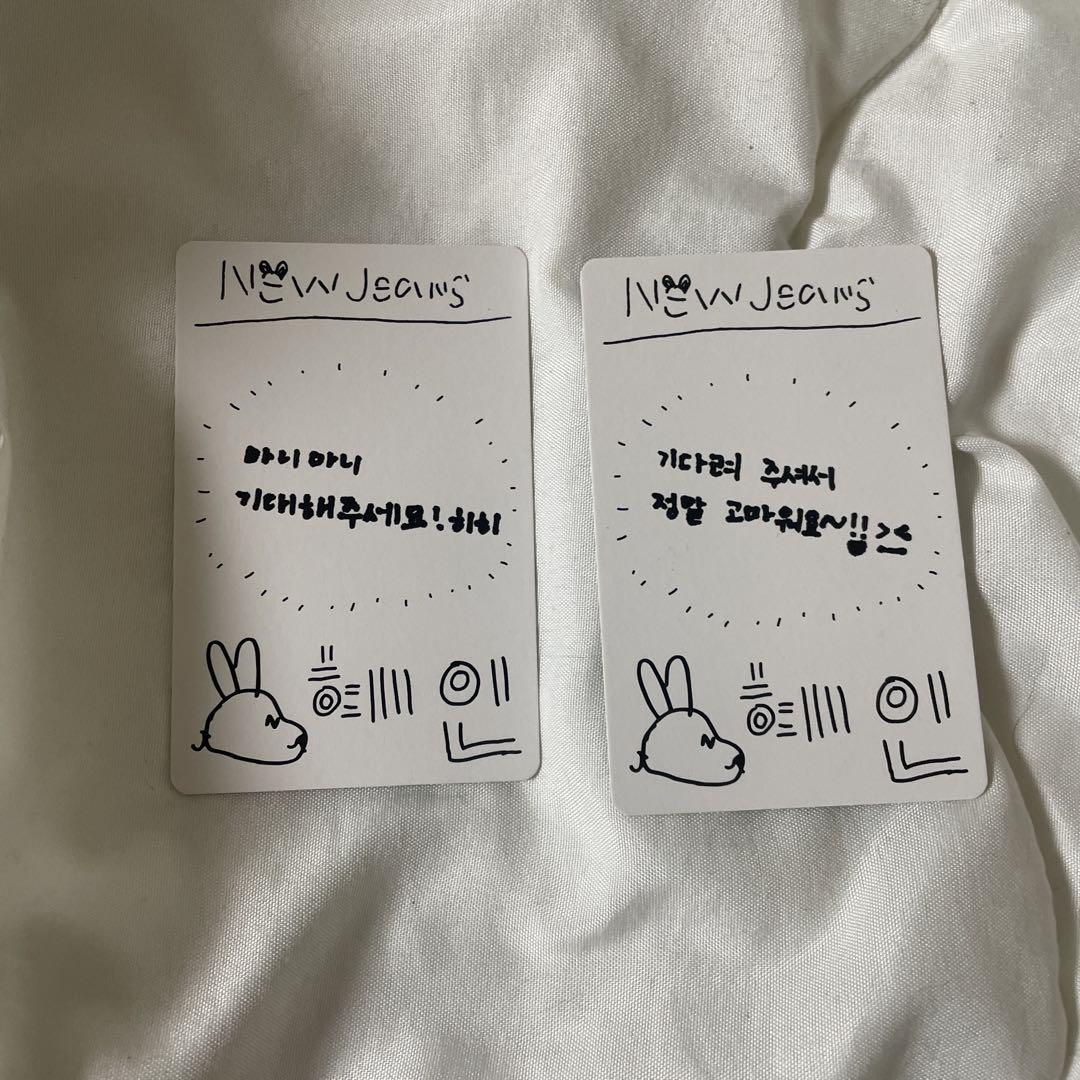 NEW Jeans
마니마니
기대해주세요! 히히
혜인
NEW Jeans
기다려 주셔서
정말 고마워요~!! ><
혜인